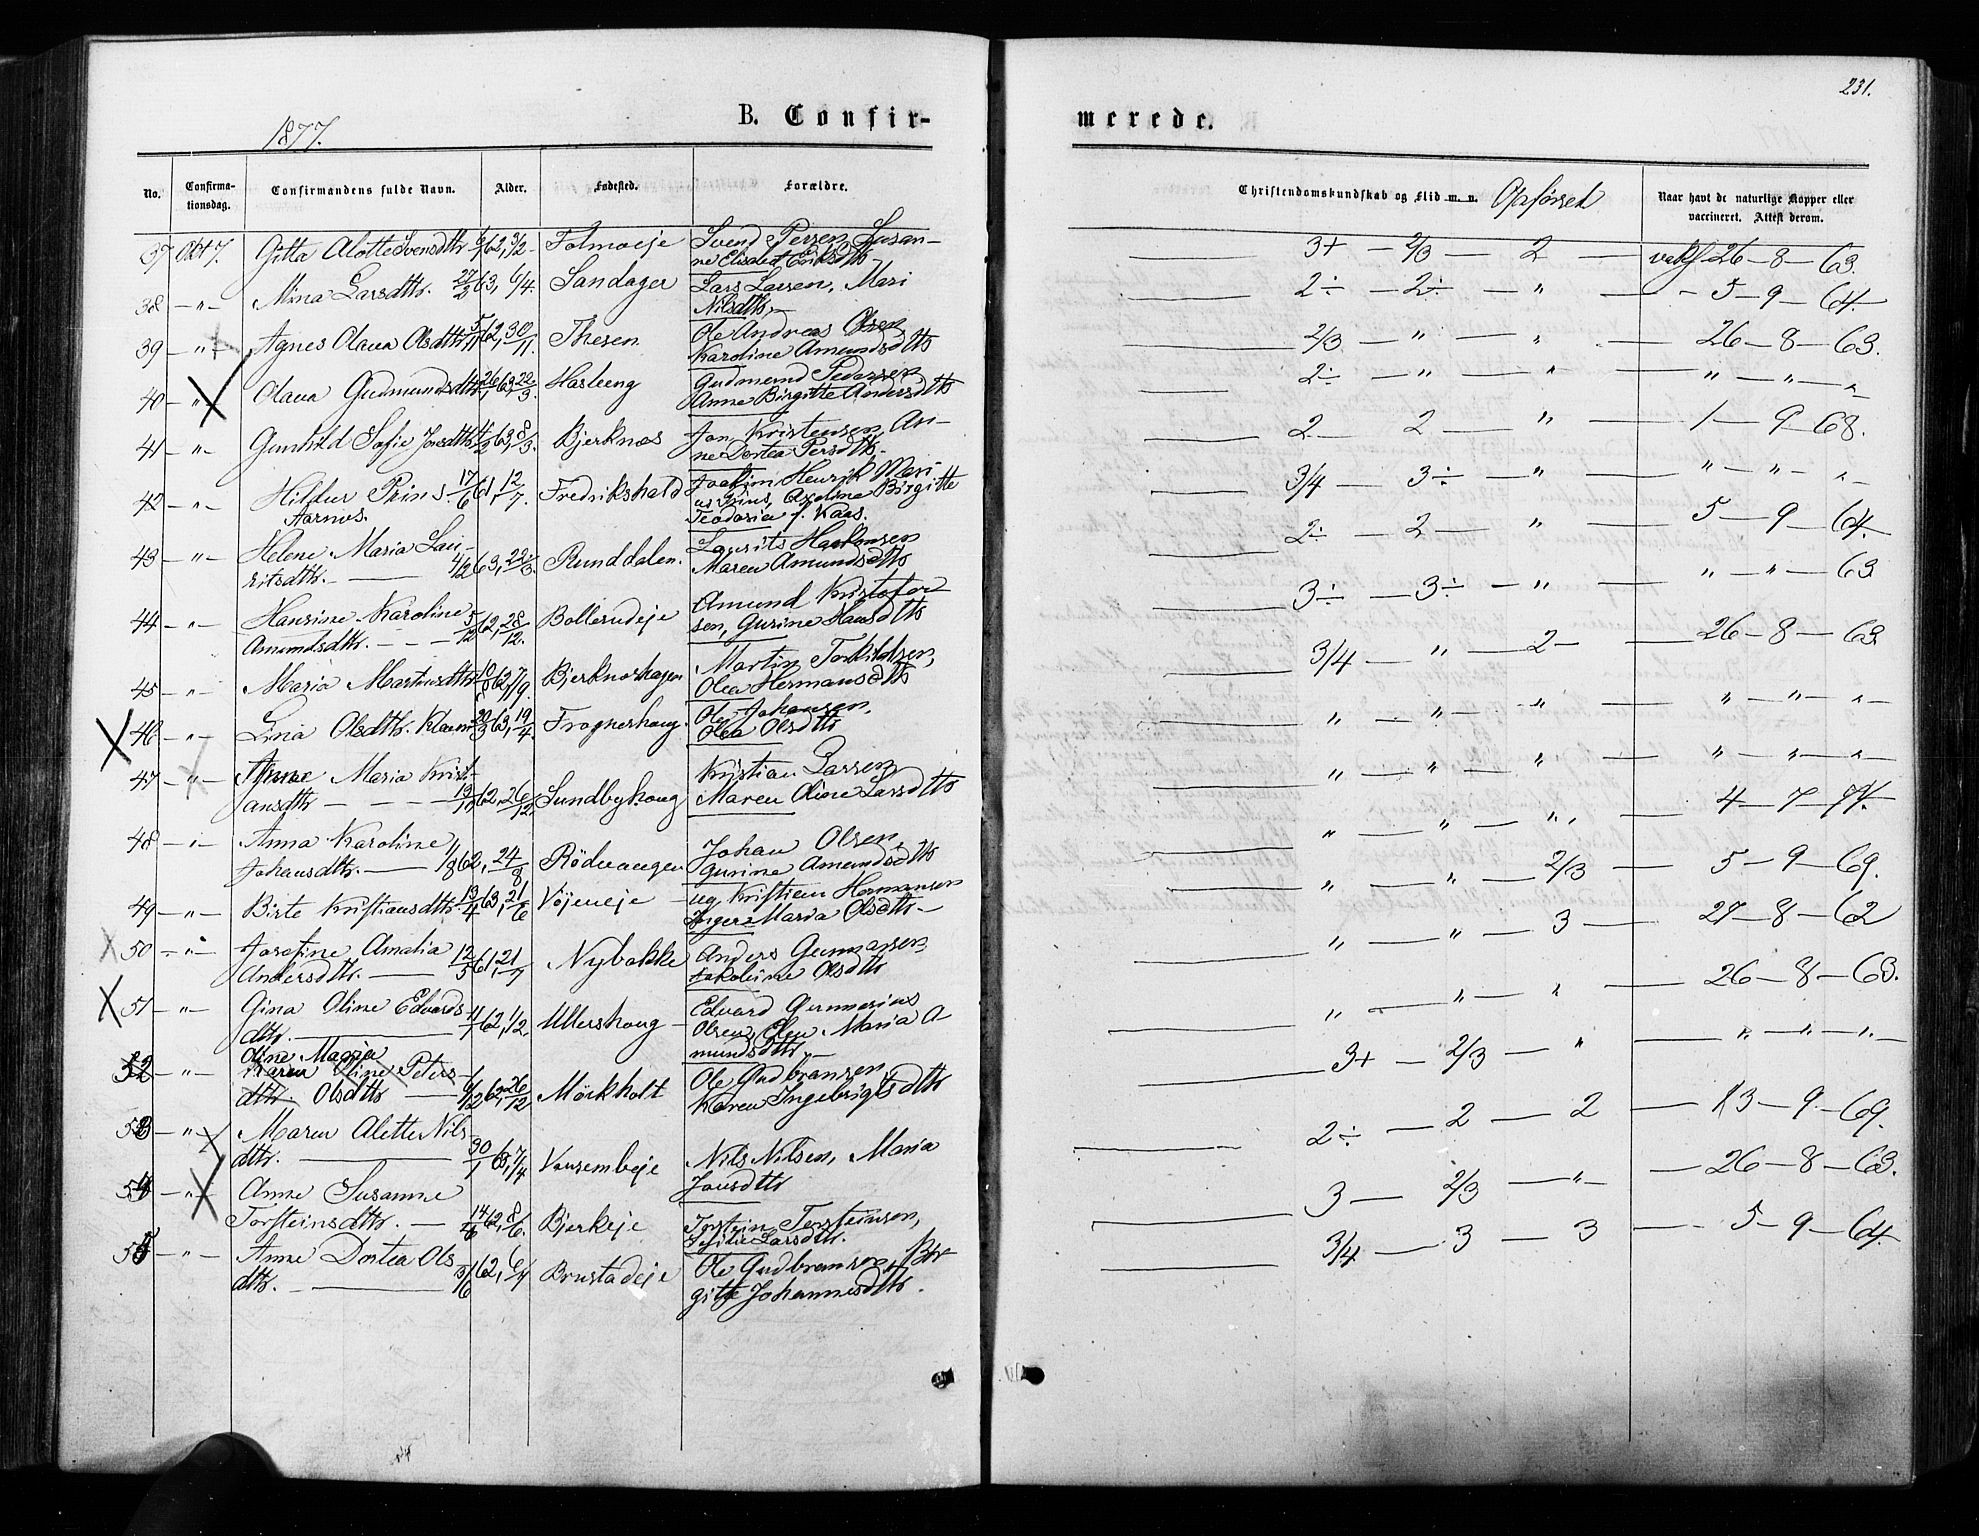 231.
1877.
B. Confir-
merede.
No.
Confirma-
tionsdag.
Confirmandens fulde Navn.
Alder.
Fødested.
Forældre.
Christendomskundskab og Flid m. v. Opførsel
Naar havt de naturlige Kopper eller
vaccineret. Attest derom.
37 Okt 7. Gitta Alotte Svensdtr 62, 3/2 Svend Persen, Susan-
ne Elisabet Eriksdtr
3+ - 2/3 - 2 - 26-8-63.
38 - " - Mina Larsdtr. 63, 6/4. Sandager Lars Larsen, Mari
Nilsdtr
2÷ - 2÷ - " - 5-9-64.
39 - " - Agnes Olava Olsdtr 5/11 62, 30/11. Thesen Ole Andreas Olsen,
Karoline Amundsdtr
2/3 - " - " 26-8-63.
40 - " Olava Gudmundsdtr 26/1 63, 22/3. Gudmund Pedersen
Anne Birgitte Andersdtr
2÷ - " - " " - " - "
41 - " - Gunhild Sofie Jonsdtr 4/2 63, 8/3. Bjerknæs Jon Kristensen, An-
ne Dortea Persdtr.
2 - 2 - " 1-9-68.
42 - " Hildur Prins 17/6 61, 12/7. Fredrikshald Joakim Henrik Mari-
us Prins, Axeline Birgitte
Aarnes. Teodoria f. Kaas.
3/4 - 3÷ - " " - " - "
43 - " - Helene Maria Lau-
ritsdtr. 4/2 63, 22/3. Runddalen. Laurits Haakonsen
Maren Amundsdtr
2÷ - 2 - " 5-9-64.
44 - " - Hansine Karoline
Amundsdtr. 5/12 62, 28/12. Bollerudeje Amund Kristofer
sen, Gurine Hansdtr
3÷ - 3÷ - " " - " - 63
45 - " Maria Martinsdtr 62, 7/9. Bjerkneshagen Martin Torkildsen,
Olea Hermansdtr
3/4 - " - 2 - 26-8-63
46 - " - Lina Olsdtr. 20/3 63, 19/4. Frognerhaug. Ole Johansen,
Olea Olsdtr
" - " - " " - " - "
47 - " - Anne Maria Krist-
iansdtr 62, 26/12, Sundbyhaug Kristian Larsen
Maren Oline Larsdtr
" - " - " " - " - "
48 Anna Karoline
Johansdtr. 62, 24/8 Rødvangen Johan Olsen,
Gurine Amundsdtr
" - " - " 4-7-74.
49 - " - Birte Kristiansdtr. 13/4 63, 21/6 Vøjeneje ug. Kristian Hermansen
Inger Maria Olsdtr
" - " - 2/3 - 5-9-69.
50 - " Josefine Amalia
Andersdtr. 12/5 61, 21/7 Nybakke Anders Gunnarsen,
Jakobine Olsdtr
" - " - 3 - 27-8-62
51 - " - Gina Oline Edvards
dtr. 62, 1/2 Ullershaug Edvard Gunnerius
Olsen, Elen Maria A
mundsdtr
" - " - " 26-8-63.
52 - " - Oline Maria
Karen Oline Peters
dtr. Olsdtr 6/12 62, 26/12 Mørkholt Ole Gudbransen
Karen Ingebrigtsdtr
3+ - 2/3 - " " - " - "
53 - " Maren Alette Nils
dtr. 30/1 63, 7/4 Nils Nilsen, Maria
Jonsdtr
2÷ - 2 - 2 - 13-9-69.
54 - " - Anne Susanne
Torsteinsdtr. 14/4 62, 8/6. Bjerkeje Torstein Torsteinsen,
Larsdtr.
3 - 2/3 - " - 26-8-63.
55 - " - Anne Dortea Ols
dtr. 62, 6/7 Brustadeje Ole Gudbransen, Bir
gitte Johannesdtr.
3/4 - 3 - 3 - 5-9-64.